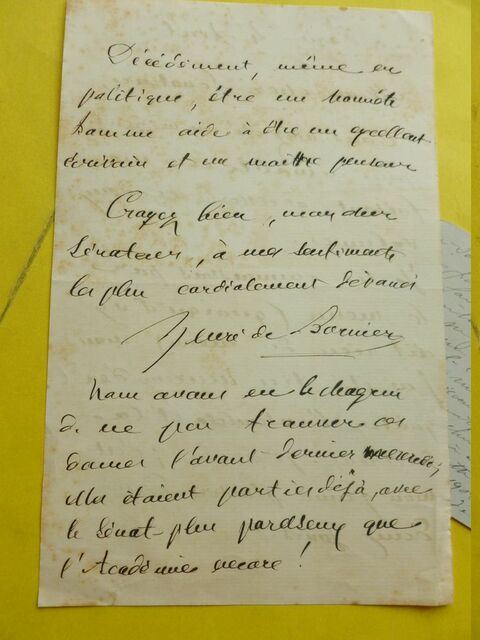 Décidément, même en
politique, être un honnête
homme aide à être un excellent
écrivain et un maître penseur
Croyez bien, mon cher
Sénateur, à mes sentiments
les plus cordialement dévoués
Henri de Bornier
Nous avons eu le chagrin
de ne pas trouver ces
dames l'avant dernier mercredi,
elles étaient parties déjà, avec
le Sénat plus paresseux que
l'Académie encore !